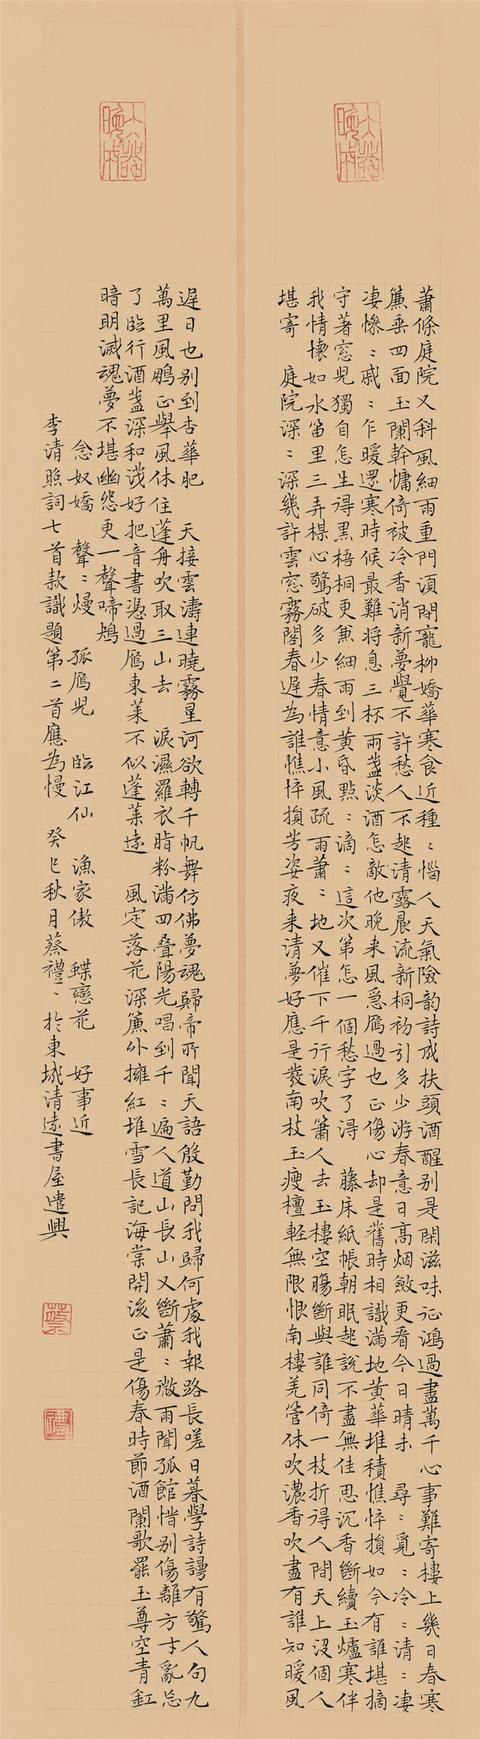 大器晚成
蕭條庭院又斜風細雨重門須閉寵柳嬌華寒食近種〻惱人天氣險韵詩成扶頭酒醒別是閑滋味征鴻過盡萬千心事難寄樓上幾日春寒
簾垂四面玉闌幹慵倚被冷香消新夢覺不許愁人不起清露晨流新桐初引多少游春意日高烟斂更看今日晴未 尋〻覓〻冷〻清〻凄
凄慘〻戚〻乍暖還寒時候最難將息三杯兩盞淡酒怎敵他晚来風急雁過也正傷心却是舊時相識滿地黃華堆積憔悴損如今有誰堪摘
守著窓兒獨自怎生得黑梧桐更兼細雨到黃昏點〻滴〻這次第怎一個愁字了得 藤床紙帳朝眠起說不盡無佳思沉香斷續玉爐寒伴
我情懷如水笛里三弄楳心驚破多少春情意小風疏雨蕭〻地又催下千行淚吹簫人去玉樓空腸斷與誰同倚一枝折得人間天上沒個人
堪寄 庭院深〻深幾許雲窓霧閣春遲為誰憔悴損芳姿夜来清夢好應是發南枝玉瘦檀輕無限恨南樓羌管休吹濃香吹盡有誰知暖風
大器晚成
遲日也別到杏華肥 天接雲濤連曉霧星河欲轉千帆舞仿佛夢魂歸帝所聞天語殷勤問我歸何處我報路長嗟日暮學詩謾有驚人句九
萬里風鵬正舉風休住蓬舟吹取三山去 淚濕羅衣脂粉滿四疊陽光唱到千〻遍人道山長山又斷蕭〻微雨聞孤館惜別傷離方寸亂忘
了臨行酒盞深和淺好把音書憑過雁東萊不似蓬萊遠 風定落花深簾外擁紅堆雪長記海棠開後正是傷春時節酒闌歌罷玉尊空青缸
暗明滅魂夢不堪幽怨更一聲啼鴂
念奴嬌 聲〻熳 孤雁兒 臨江仙 漁家傲 蝶戀花 好事近
李清照詞七首款識題第二首應為慢 癸巳秋月蔡禮〻於東城清遠書屋遣興
蔡
禮